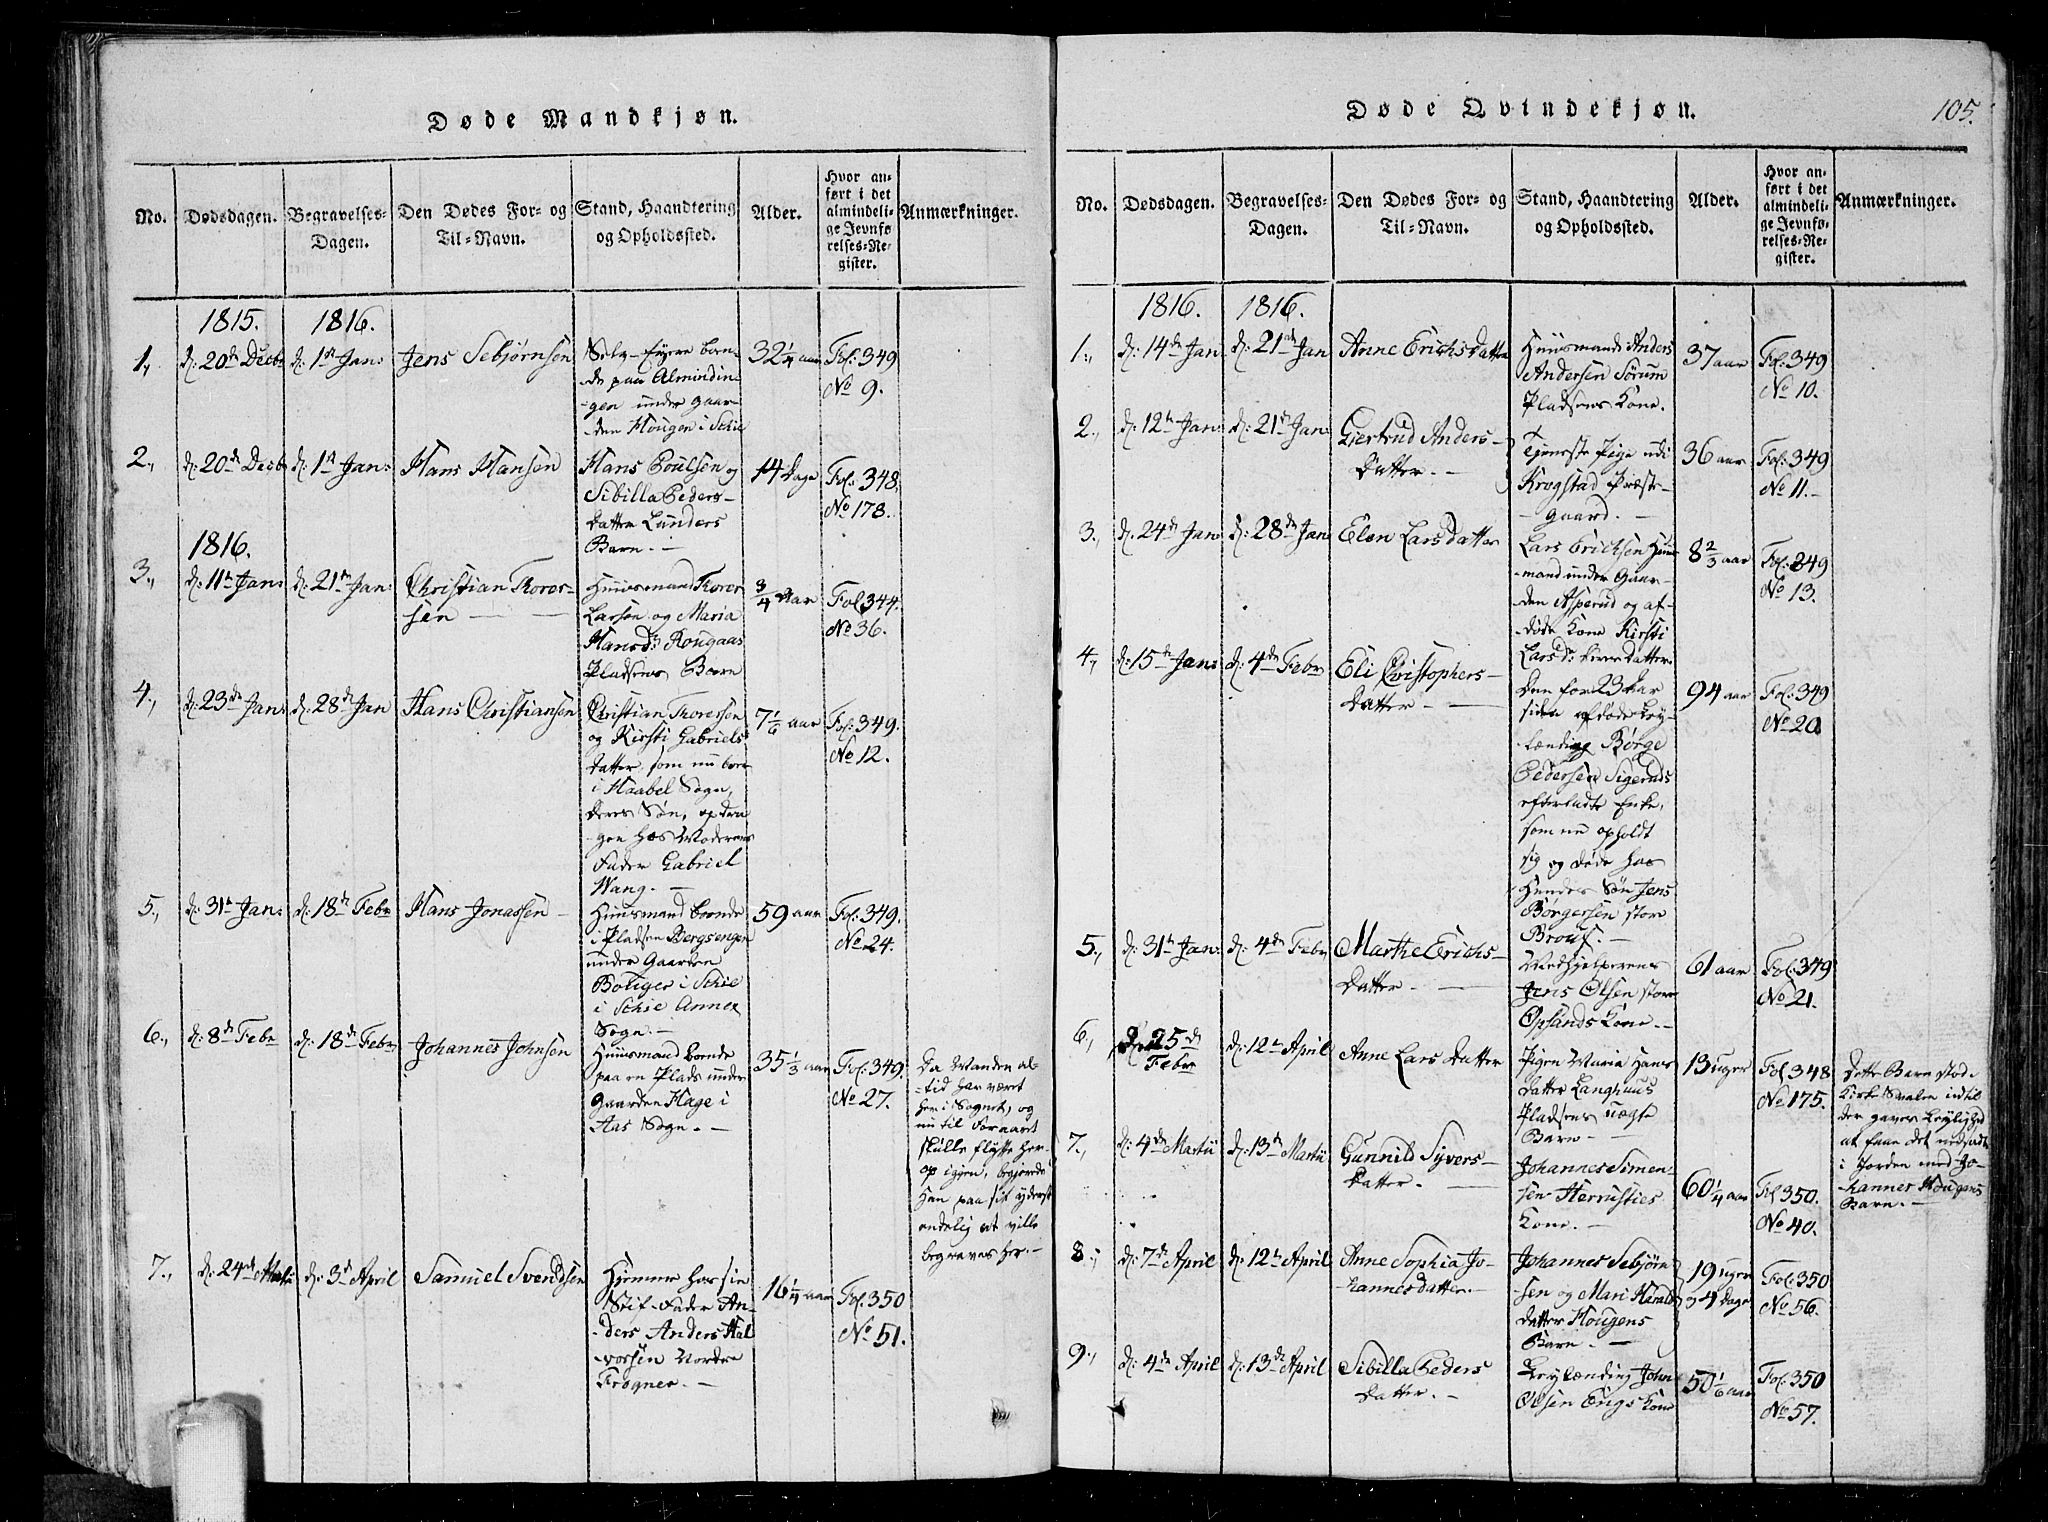 Døde Mandkjøn.
No.
Dødsdagen.
Begravelses-
Dagen.
Den Dødes For- og
Til-Navn.
Stand, Haandtering
og Opholdssted.
Alder.
Hvor an-
ført i det
almindeli-
ge Jevnfø-
relses-Re-
gister.
Anmærkninger.
1815.
1816.
1.,
d: 20de Decbr
d: 1ste Jan:
Jens Sebjørnsen
Selv-Eyere boen-
de paa Almindin-
gen under Gaar-
den Hougen i Schie
32 1/4 aar
Fol: 349
No 9.
2.,
d: 20de Decbr
d: 1ste Jan:
Hans Hansen
Hans Poulsen og
Sibilla Peders-
datter Lunders
Barn. —
14 Dage
Fol: 348,
No 178.
1816.
3.,
d: 11te Jan:
d: 21de Jan:
Christian Thorer-
sen —
Huusmand Thorer
Larsen og Maria
Hansd: Rougaas
Pladsens Barn
3/4 Aar
Fol 344.
No 36.
4.,
d: 23de Jan:
d: 28de Jan
Hans Christiansen
Christian Thorersen
og Kirsti Gabriels
datter, som nu boer
i Haabel Sogn,
deres Søn, opdra
gen hos Moderens
Fader Gabriel
Wang. —
7 1/6 aar
Fol: 349.
No 12.
5.,
d: 31te Jan:
d: 18de Febr
Hans Jonassen —
Huusmand boende
i Pladsen Bergsengen
under Gaarden
Botiger i Schie
i Schie Annex
Sogn. —
59 aar
Fol: 349.
No 24.
6.,
d: 8de Febr
d: 18de Febr
Johannes Johnsen
Huusmand boende
paa en Plads under
Gaarden Hage i
Aas Sogn. —
35 1/3 aar
Fol: 349.
No 27.
Da Manden al-
tid har været
her i Sognet, og
nu til Foraaret
skulle flytte her-
op igien, begjerede
han paa sit yderste
endelig at ville
begraves her. —
7.,
d: 24de Martii
d: 3de April
Samuel Svendsen
Hjemme hos sin
Stif-Fader An-
ders Anders Hal
vorsen Nordre
Frogner. —
16 1/4 aar
Fol: 350
No 51.
Døde Qvindekjøn.
105.
No.
Dødsdagen.
Begravelses-
Dagen.
Den Dødes For- og
Til-Navn.
Stand, Haandtering
og Opholdssted.
Alder.
Hvor an-
ført i det
almindeli-
ge Jevnfø-
relses-Re-
gister.
Anmærkninger.
1816.
1816.
1.,
d: 14de Jan:
d: 21de Jan
Anne Erichsdatter
Huusmands Anders
Andersen Sørum
Pladsens Kone.
37 aar
Fol: 349
No 10.
2.,
d: 12te Jan:
d: 21de Jan:
Giertrud Anders-
datter. —
Tjeneste Pige udi
Krogstad Præste-
gaard. —
36 aar
Fol: 349
No 11. —
3.,
d: 24de Jan:
d: 28de Jan
Elen Larsdatter
Lars Erichsen Huus
mand under Gaar-
den Asperud og af-
døde Kone Kirsti
Larsd: deres datter.
8 2/3 aar
Fol: 249
No 13.
4.,
d: 15de Jan:
d: 4de Febr
Eli Christophers-
datter —
Den for 23 Aar
siden afdøde Ley-
lænding Børge
Pedersen Sigeruds
efterladte Enke,
som nu opholdt
sig og døde hos
Hendes Søn Jens
Børgersen store
Brou. —
94 aar
Fol: 349
No 20
5.,
d: 31te Jan:
d: 4de Febr
Marthe Erichs-
datter. —
Medhjelperens
Jens Olsen store
Opsands Kone. —
61 aar
Fol: 349
No 21.
6.,
d: 25de
Febr
d: 12te April
Anne Lars datter
Pigen Maria Hans
datter Langhuus
Pladsens uægte
Barn —
13 uger
Fol 348
No 175.
Dette Barn stod i
Kirke Svalen indtil
der gaves Leylighed
at faae det nedsadt
i Jorden med Jo-
hannes Hougens
Barn. —
7.,
d: 4de Martii
d: 13de Martii
Gunnild Syvers-
datter. —
Johannes Simen-
sen Herrusties
Kone. —
60 1/4 aar
Fol 350.
No 40.
8.,
d: 7de April
d: 12te April
Anne Sophia Jo-
hannesdatter. —
Johannes Sebjørn
sen og Mari Harald
datter Hougens
Barn. —
19 uger
og 4 dage
Fol: 350
No 56.
9.,
d: 4de April
d: 13de April
Sibilla Peders
datter. —
Leylænding John
Olsen Engs Kone
50 1/6 aar
Fol: 350
No 57.